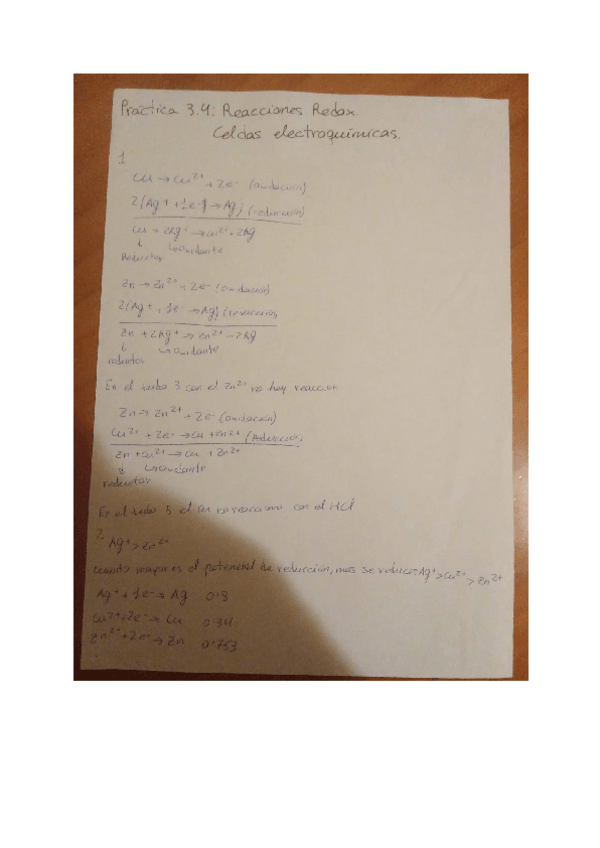 Práctica 3.4: Reacciones Redox.
Celdas electroquímicas.
1
Cu → Cu²⁺ + 2e⁻ (oxidación)
2(Ag⁺ + 1e⁻ → Ag) (reducción)
Cu + 2Ag⁺ → Cu²⁺ + 2Ag
↓ ↳ oxidante
Reductor
Zn → Zn²⁺ + 2e⁻ (oxidación)
2(Ag⁺ + 1e⁻ → Ag) (reducción)
Zn + 2Ag⁺ → Zn²⁺ + 2Ag
↓ ↳ oxidante
reductor
En el tubo 3 con el Zn²⁺ no hay reacción
Zn → Zn²⁺ + 2e⁻ (oxidación)
Cu²⁺ + 2e⁻ → Cu (Reducción)
Zn + Cu²⁺ → Cu + Zn²⁺
↓ ↳ oxidante
reductor
En el tubo 5 el no reacciona con el HCl
2. Ag⁺ > Zn²⁺
Cuanto mayor es el potencial de reducción, mas se reduce: Ag⁺ > Cu²⁺ > Zn²⁺
Ag⁺ + 1e⁻ → Ag 0'8
Cu²⁺ + 2e⁻ → Cu 0'34
Zn²⁺ + 2e⁻ → Zn 0'753